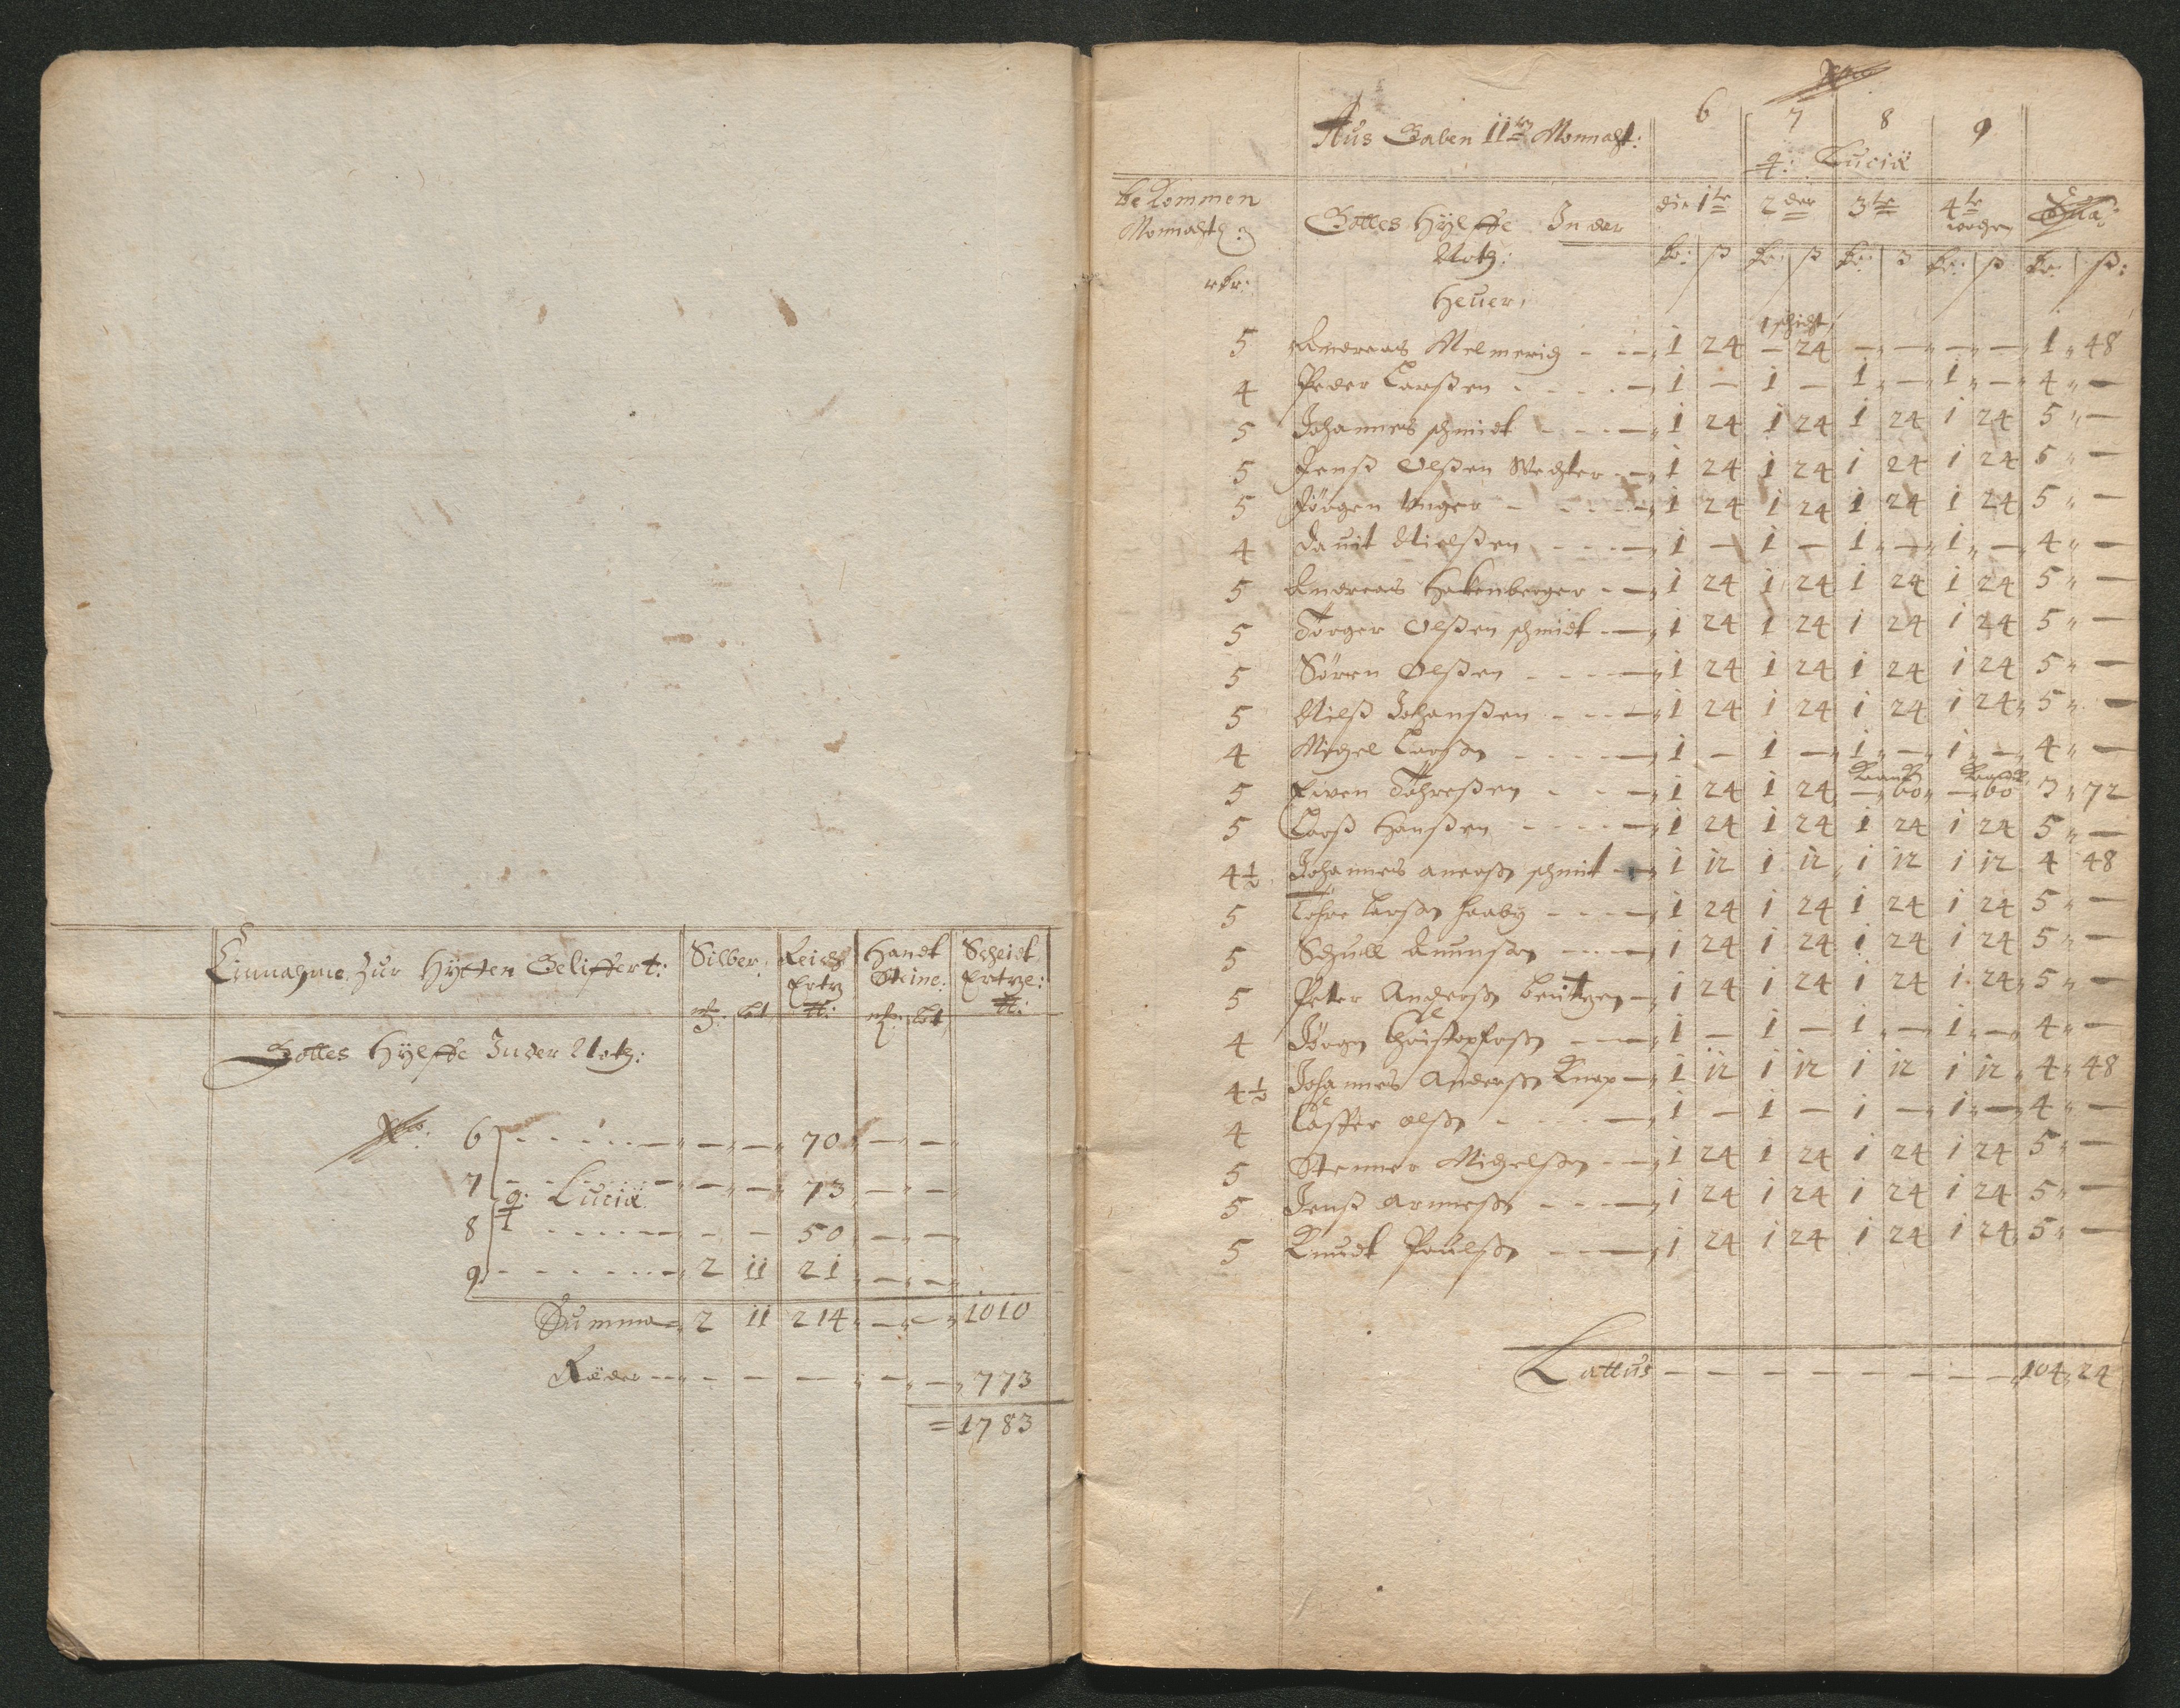 Einnahme Zur Hytten Geliffert: Silber: Reich Ertz Handt Steine: Scheidt Ertze:
mk: lot
Gottes Hÿlffe In der Noth:
Xbr: 6 - - - - - 70 - -
7 - - - - - 73 - -
q: Luciä
8 - - - - - 50 - -
9 - - - - - 2 11 21 - -
Summa 2 11 214 - - 1010
Räder - - - - - 773
= 1783
Xbr
Aus Gaben 11ter Monnaht: 6 7 8 9
q: Luciä
bekommen Monnahtl:
Gottes Hÿlffe In der Noth: die 1te 2der 3te 4te wochen Sũa:
rdr: Heuer, dr: ß dr: ß dr: ß dr: ß dr: ß:
1 schicht
5 Andreas Melmerich - - 1 24 - 24 - - - - 1 48
4 Peder Larßen - - - 1 - 1 - 1 - 1 - 4 -
5 Johannes schmidt - - - 1 24 1 24 1 24 1 24 5 -
5 Jenß Olßen Wechter - 1 24 1 24 1 24 1 24 5 -
5 Jörgen Unger - - - 1 24 1 24 1 24 1 24 5 -
4 Dauit Nielßen - - - 1 - 1 - 1 - 1 - 4 -
5 Andreas Hakenberger - - 1 24 1 24 1 24 1 24 5 -
5 Torger Olßen schmidt - 1 24 1 24 1 24 1 24 5 -
5 Sören Olßen - - - 1 24 1 24 1 24 1 24 5 -
5 Nielß Johanßen - - - 1 24 1 24 1 24 1 24 5 -
4 Michel Larßen - - - 1 - 1 - 1 - 1 - 4 -
Krank
5 Eiven Tohreßen - - - 1 24 1 24 - 60 - 60 3 72
5 Larß Hanßen - - - 1 24 1 24 1 24 1 24 5 -
4½ Johannes anerßen schmit - 1 12 1 12 1 12 1 12 4 48
5 Tohre Larßen haaby - - - 1 24 1 24 1 24 1 24 5 -
5 Schull Amunßen - - - 1 24 1 24 1 24 1 24 5 -
5 Peter Anderßen Bentzen - 1 24 1 24 1 24 1 24 5 -
4 Jörgen Christopherßen - - 1 - 1 - 1 - 1 - 4 -
4½ Johannes Anderßen Knap - 1 12 1 12 1 12 1 12 4 48
4 Casper olßen - - - 1 - 1 - 1 - 1 - 4 -
5 Stenner Michelßen - - 1 24 1 24 1 24 1 24 5 -
5 Jenß Arneßen - - - 1 24 1 24 1 24 1 24 5 -
5 Knudt Paulßen - - - 1 24 1 24 1 24 1 24 5 -
Lattus - - - - - - - - 104 24